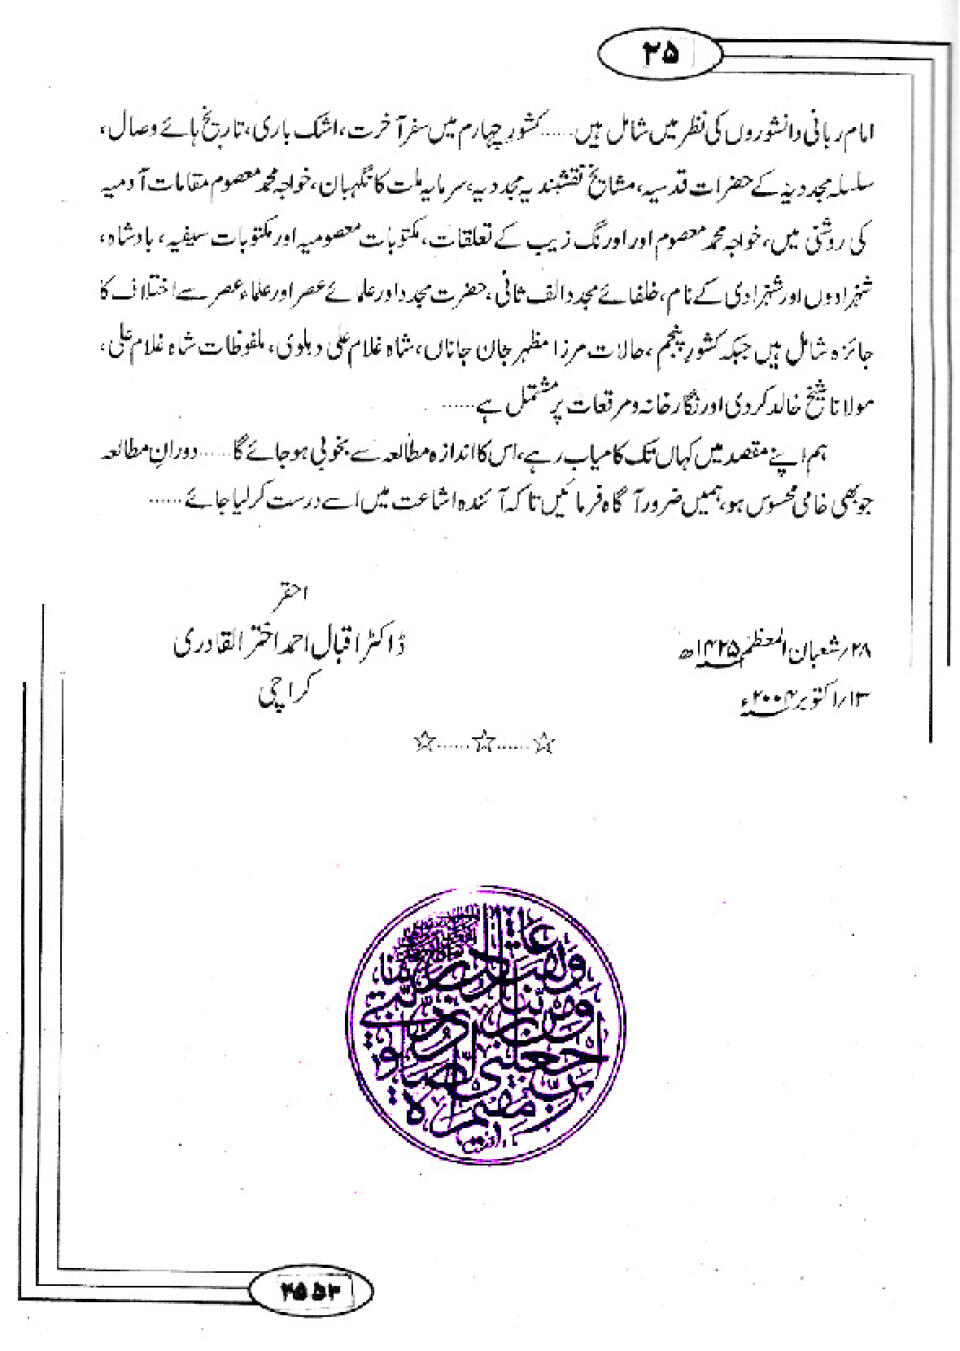 ۲۵
امام ربانی دانشوروں کی نظر میں شامل ہیں......کشورِ چہارم میں سفر آخرت، اشک باری، تاریخ ہائے وصال،
سلسلہ مجددیہ کے حضرات قدسیہ، مشایخ نقشبندیہ مجددیہ، سرمایہ ملت کا نگہبان، خواجہ محمد معصوم مقامات آدمیہ
کی روشنی میں، خواجہ محمد معصوم اور اورنگ زیب کے تعلقات، مکتوبات معصومیہ اور مکتوبات سیفیہ، بادشاہ،
شہزادوں اور شہزادی کے نام، خلفائے مجدد الف ثانی، حضرت مجدد اور علمائے عصر اور علماء عصر سے اختلاف کا
جائزہ شامل ہیں جبکہ کشورِ پنجم، حالات مرزا مظہر جان جاناں، شاہ غلام علی دہلوی، ملفوظات شاہ غلام علی،
مولانا شیخ خالد کردی اور نگار خانہ و مرقعات پر مشتمل ہے......
ہم اپنے مقصد میں کہاں تک کامیاب رہے، اس کا اندازہ مطالعہ سے بخوبی ہو جائے گا......دورانِ مطالعہ
جو بھی خامی محسوس ہو، ہمیں ضرور آگاہ فرمائیں تا کہ آئندہ اشاعت میں اسے درست کر لیا جائے......
احقر
۲۸/شعبان المعظم ۱۴۲۵ھ ڈاکٹر اقبال احمد اختر القادری
۱۳/اکتوبر ۲۰۰۴ء کراچی
☆......☆......☆
رب اجعلنی مقیم الصلوٰة
ومن ذریتی ربنا
وتقبل دعاء